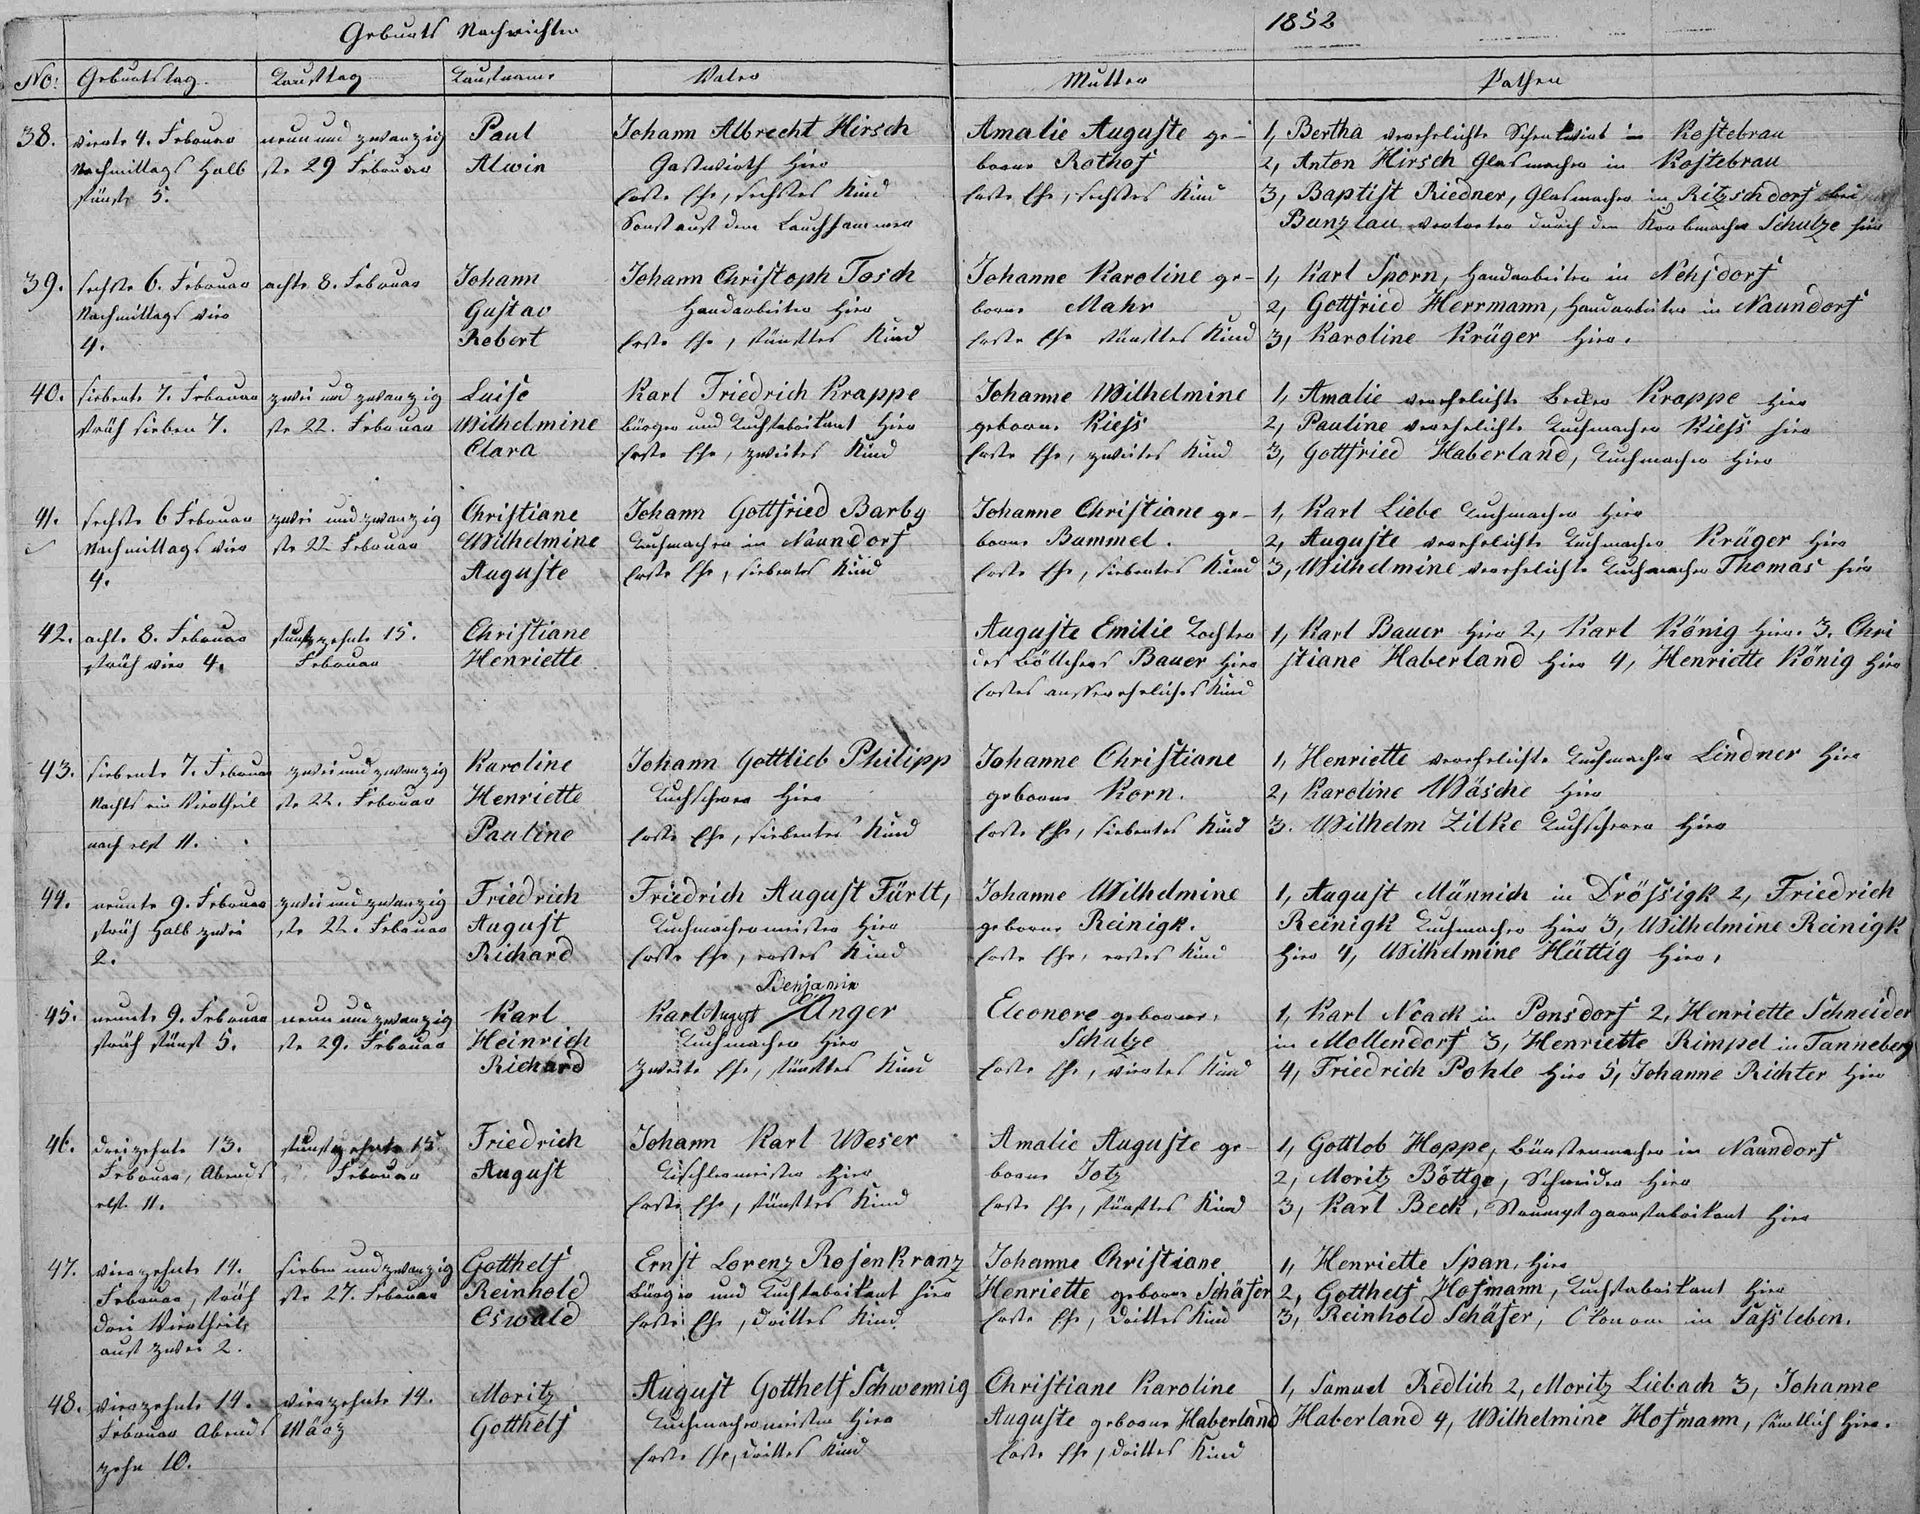 Geburts Nachrichten
1852
No. Geburtstag. Tauftag Taufname Vater Mutter Pathen
38. vierte 4. Februar neun und zwanzig Paul Johann Albrecht Hirsch Amalie Auguste ge- 1, Bertha verehelichte Schenkwirt in Kostebrau
Nachmittags halb ste 29 Februar Alwin Gastwirth hier borne Rothof 2, Anton Hirsch Glasmacher in Kostebrau
fünf 5. Erste Ehe, sechstes Kind Erste Ehe, sechstes Kind 3, Baptist Riedner, Glasmacher in Ritzschdorf bei
Sonst auf dem Lauchhammer Bunzlau vertreten durch den Korbmacher Schulze hier
39. sechste 6. Februar achte 8. Februar Johann Johann Christoph Tosch Johanne Karoline ge- 1, Karl Sporn, Handarbeiter in Nehsdorf
Nachmittags vier Gustav Handarbeiter hier borne Mahr 2, Gottfried Herrmann, Handarbeiter in Naundorf
4. Robert Erste Ehe, fünftes Kind Erste Ehe fünftes Kind 3, Karoline Krüger hier.
40. siebente 7. Februar zwei und zwanzig Luise Karl Friedrich Krappe Johanne Wilhelmine 1, Amalie verehelichte Krappe hier
früh sieben 7. ste 22. Februar Wilhelmine Bürger und Tuchfabrikant hier geborne Kiess 2, Pauline verehelichte Tuchmacher Kiess hier
Clara Erste Ehe, zweites Kind Erste Ehe, zweites Kind 3, Gottfried Haberland, Tuchmacher hier
41. sechste 6 Februar zwei und zwanzig Christiane Johann Gottfried Barby Johanne Christiane ge- 1, Karl Liebe Tuchmacher hier
Nachmittags vier ste 22 Februar Wilhelmine Tuchmacher in Naundorf borne Bummel. 2, Auguste verehelichte Tuchmacher Krüger hier
4. Auguste Erste Ehe, siebentes Kind Erste Ehe, siebentes Kind 3, Wilhelmine verehelichte Tuchmacher Thomas hier
42. achte 8. Februar funfzehnte 15. Christiane Auguste Emilie Tochter 1, Karl Bauer hier 2, Karl König hier. 3. Chri
früh vier 4. Februar Henriette des Böttchers Bauer hier stiane Haberland hier 4, Henriette König hier
Erstes aussereheliches Kind
43. siebente 7. Februar zwei und zwanzig Karoline Johann Gottlieb Philipp Johanne Christiane 1, Henriette verehelichte Tuchmacher Lindner hier
Nachts ein Viertheil ste 22. Februar Henriette Tuchscherer hier geborne Korn. 2, Karoline Wäsche hier
nach elf 11. Pauline Erste Ehe, siebentes Kind Erste Ehe, siebentes Kind 3. Wilhelm Zilke Tuchscherer hier
44. neunte 9. Februar zwei und zwanzig Friedrich Friedrich August Fürlt, Johanne Wilhelmine 1, August Männich in Drössigk 2, Friedrich
früh halb zwei ste 22. Februar August Tuchmachermeister hier geborne Reinigk. Reinigk Tuchmacher hier 3, Wilhelmine Reinigk
2. Richard Erste Ehe, erstes Kind Erste Ehe, erstes Kind hier 4, Wilhelmine Hüttig hier,
Benjamin
45. neunte 9. Februar neun und zwanzig Karl Karl August Unger Eleonore geborne, 1, Karl Noack in Ponsdorf 2, Henriette Schneider
früh fünf 5. ste 29. Februar Heinrich Tuchmacher hier Schulze in Mollendorf 3, Henriette Rimpel in Tanneberg
Richard Zweite Ehe, fünftes Kind Erste Ehe, viertes Kind 4, Friedrich Pohle hier 5, Johanne Richter hier
46. dreizehnte 13. funfzehnte 15. Friedrich Johann Karl Weser Amalie Auguste ge- 1, Gottlob Hoppe, Bürstenmacher in Naundorf
Februar, Abends Februar August Tischlermeister hier borne Jotz 2, Moritz Böttge, Schneider hier
elf 11. Erste Ehe, fünftes Kind Erste Ehe, fünftes Kind 3, Karl Beck, Strumpfgarnfabrikant hier
47. vierzehnte 14. sieben und zwanzig Gotthelf Ernst Lorenz Rosenkranz Johanne Christiane 1, Henriette Span, hier
Februar, früh ste 27. Februar Reinhold Bürger und Tuchfabrikant hier Henriette geborne Schäfer 2, Gotthelf Hofmann, Tuchfabrikant hier
drei Viertheil Oswald Erste Ehe, drittes Kind Erste Ehe, drittes Kind 3, Reinhold Schäfer, Ökonom in Sassleben.
auf zwei 2.
48. vierzehnte 14. vierzehnte 14. Moritz August Gotthelf Schwennig Christiane Karoline 1, Samuel Redlich 2, Moritz Liebach 3, Johanne
Februar Abends März Gotthelf Tuchmachermeister hier Auguste geborne Haberland Haberland 4, Wilhelmine Hofmann, sämtlich hier.
zehn 10. Erste Ehe, drittes Kind Erste Ehe, drittes Kind